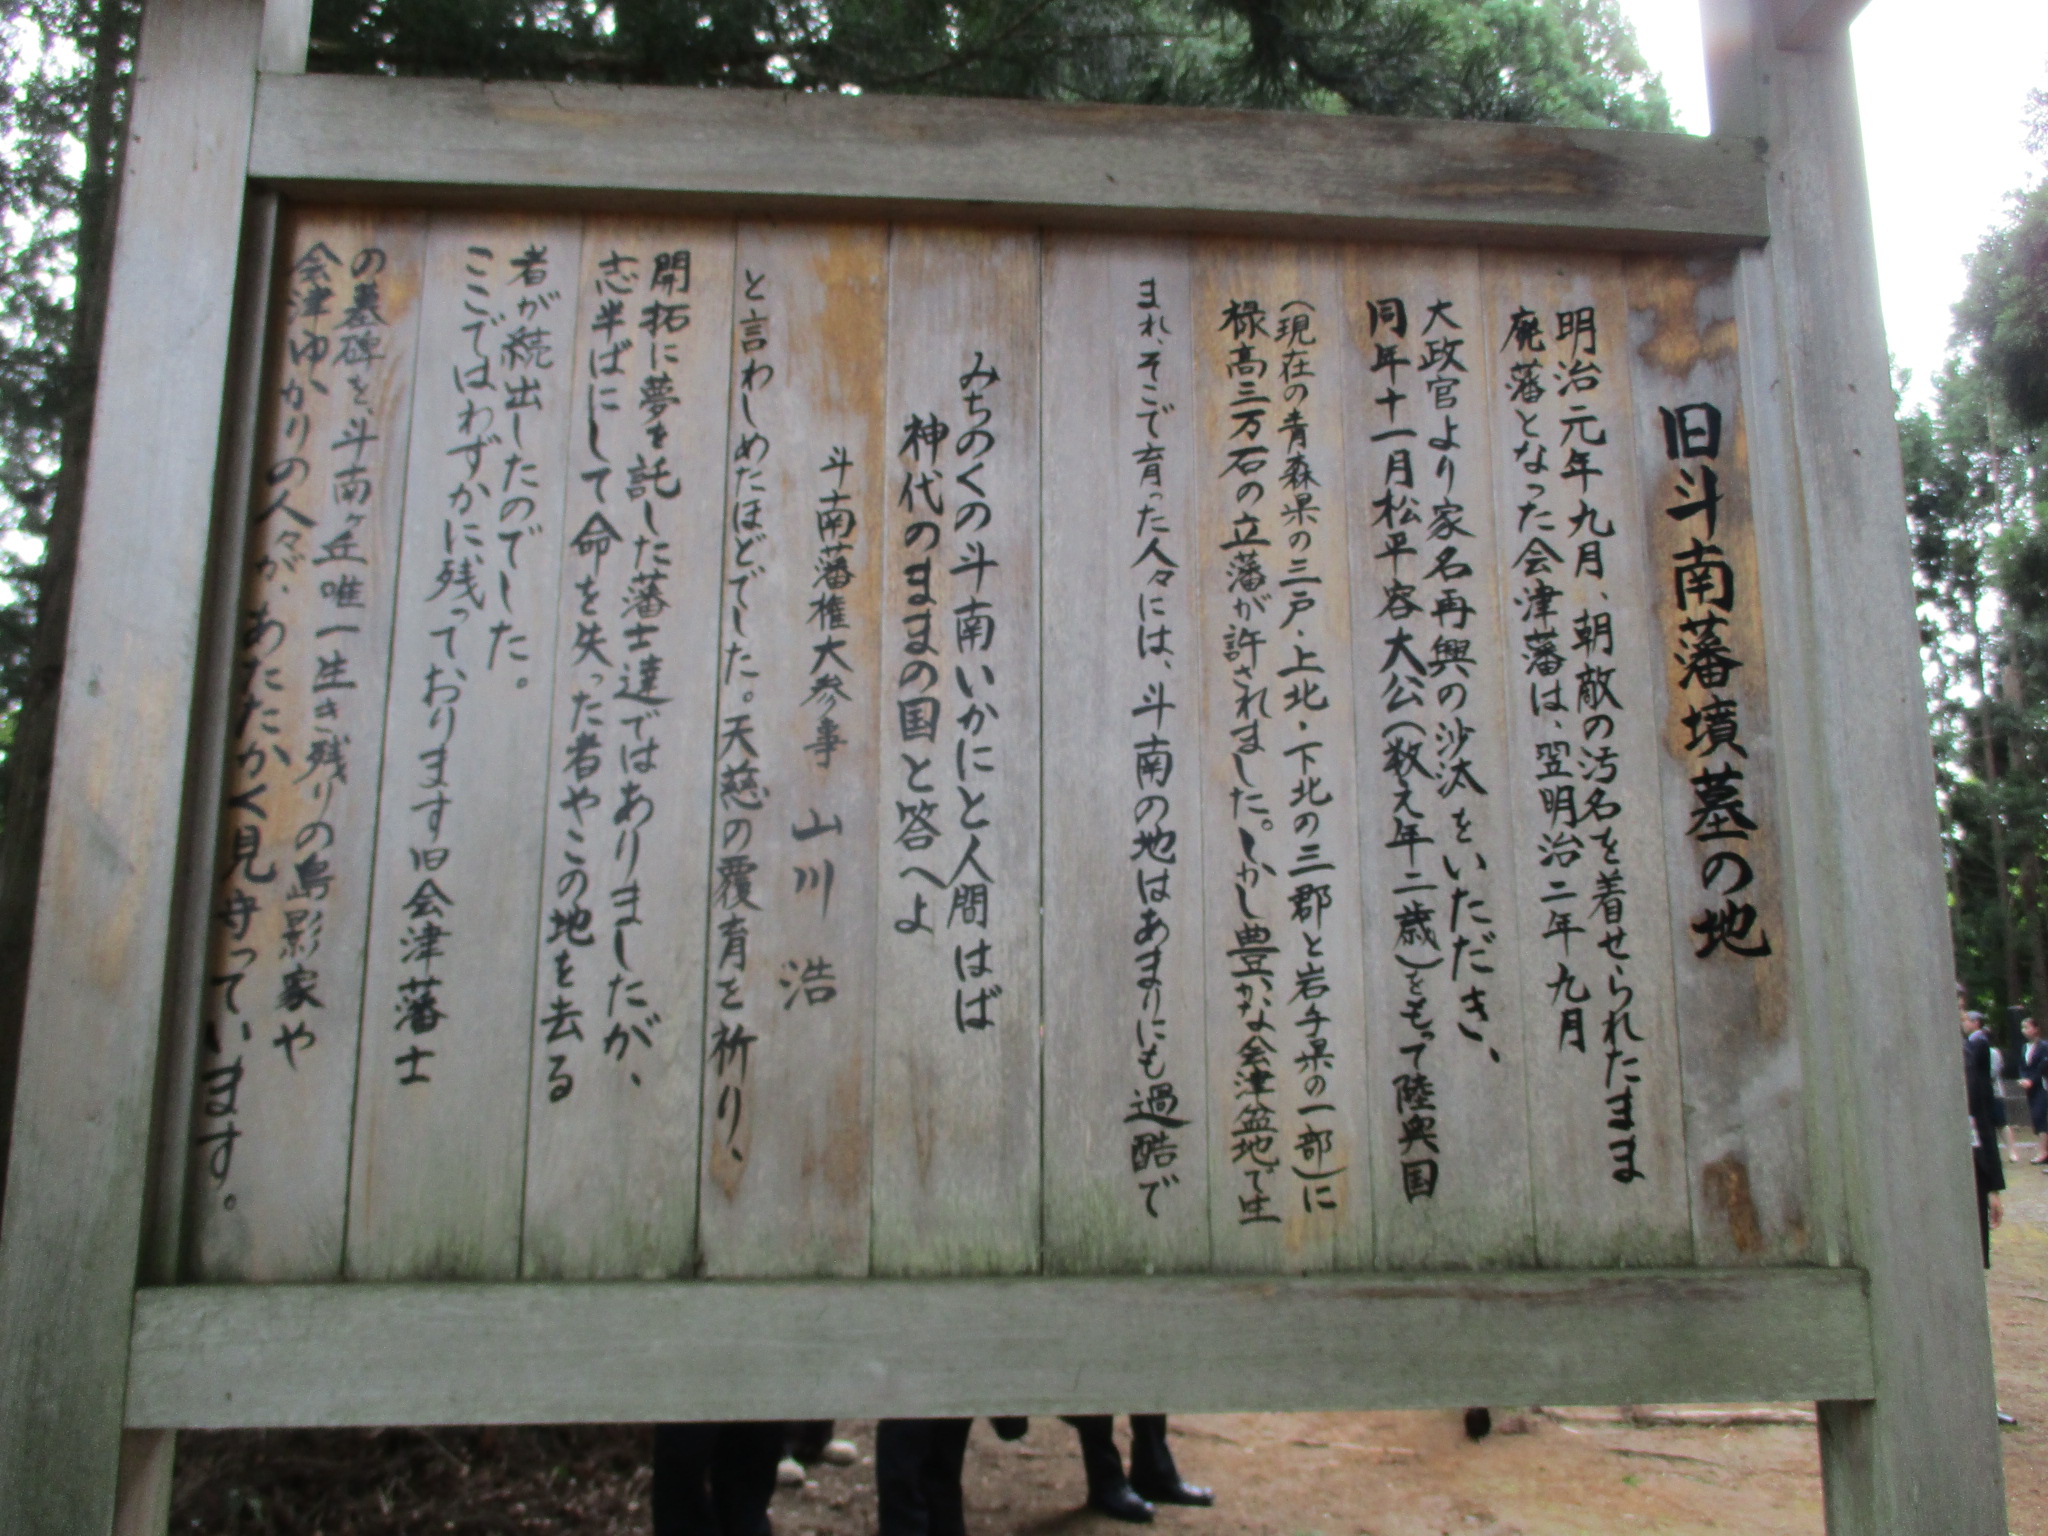 旧斗南藩墳墓の地
明治元年九月、朝敵の汚名を着せられたまま
廃藩となった会津藩は、翌明治二年九月
大政官より家名再興の沙汰をいただき、
同年十一月松平容大公(数え年二歳)をもって陸奥国
(現在の青森県の三戸・上北・下北の三郡と岩手県の一部)に
禄高三万石の立藩が許されました。しかし豊かな会津盆地で生
まれ、そこで育った人々には、斗南の地はあまりにも過酷で
みちのくの斗南いかにと人間はば
神代のままの国と答へよ
斗南藩権大参事 山川 浩
と言わしめたほどでした。天慈の覆育を祈り、
開拓に夢を託した藩士達ではありましたが、
志半ばにして命を失った者やこの地を去る
者が続出したのでした。
ここではわずかに残っております旧会津藩士
の墓碑を、斗南ヶ丘唯一生き残りの島影家や
会津ゆかりの人々が、あたたかく見守っています。